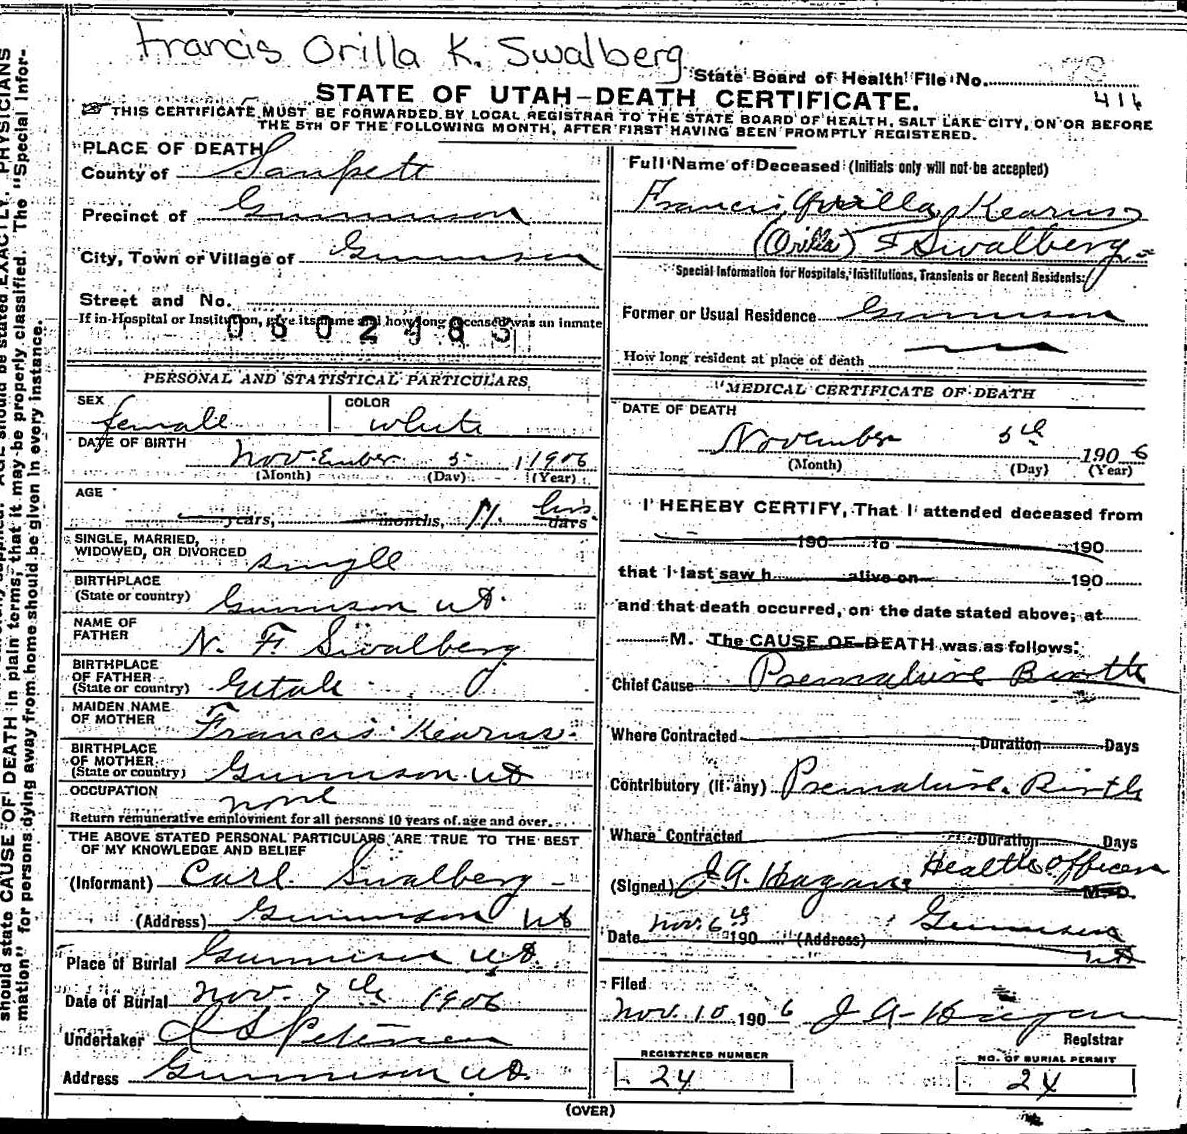 Francis Orilla K. Swalberg
State Board of Health File No.
416
STATE OF UTAH—DEATH CERTIFICATE.
THIS CERTIFICATE MUST BE FORWARDED BY LOCAL REGISTRAR TO THE STATE BOARD OF HEALTH, SALT LAKE CITY, ON OR BEFORE
THE 5TH OF THE FOLLOWING MONTH, AFTER FIRST HAVING BEEN PROMPTLY REGISTERED.
PLACE OF DEATH
County of Sanpete
Precinct of Gunnison
City, Town or Village of Gunnison
Street and No.
If in Hospital or Institution, give its name and how long deceased was an inmate
PERSONAL AND STATISTICAL PARTICULARS
SEX
female
COLOR
white
DATE OF BIRTH
November 5 1906
(Month) (Day) (Year)
AGE
years, months, 11 hrs. days
SINGLE, MARRIED,
WIDOWED, OR DIVORCED single
BIRTHPLACE
(State or country) Gunnison Ut.
NAME OF
FATHER N. F. Swalberg
BIRTHPLACE
OF FATHER
(State or country)
MAIDEN NAME
OF MOTHER Francis Kearns
BIRTHPLACE
OF MOTHER
(State or country) Gunnison Ut
OCCUPATION
none
Return remunerative employment for all persons 10 years of age and over.
THE ABOVE STATED PERSONAL PARTICULARS ARE TRUE TO THE BEST
OF MY KNOWLEDGE AND BELIEF
(Informant) Carl Swalberg
(Address) Gunnison Ut
Place of Burial Gunnison Ut.
Date of Burial Nov. 7th 1906
Undertaker Petersen
Address Gunnison Ut.
Full Name of Deceased (Initials only will not be accepted)
Francis Orilla Kearns
(Orilla) Swalberg
Special Information for Hospitals, Institutions, Transients or Recent Residents:
Former or Usual Residence Gunnison
How long resident at place of death
MEDICAL CERTIFICATE OF DEATH
DATE OF DEATH
November 5th 1906
(Month) (Day) (Year)
I HEREBY CERTIFY, That I attended deceased from
190 to 190
that I last saw h alive on 190
and that death occurred, on the date stated above, at
M. The CAUSE OF DEATH was as follows:
Chief Cause Premature Birth
Where Contracted Duration Days
Contributory (if any) Premature Birth
Where Contracted Duration Days
Health Officer
(Signed) J.A. Hagan M. D.
Date Nov. 6th 190 (Address) Gunnison
Ut
Filed
Nov. 10 1906 J A Hagan
Registrar
REGISTERED NUMBER
24
NO. OF BURIAL PERMIT
24
(OVER)
should state CAUSE OF DEATH in plain terms, that it may be properly classified. The "Special Infor-
mation" for persons dying away from home should be given in every instance.